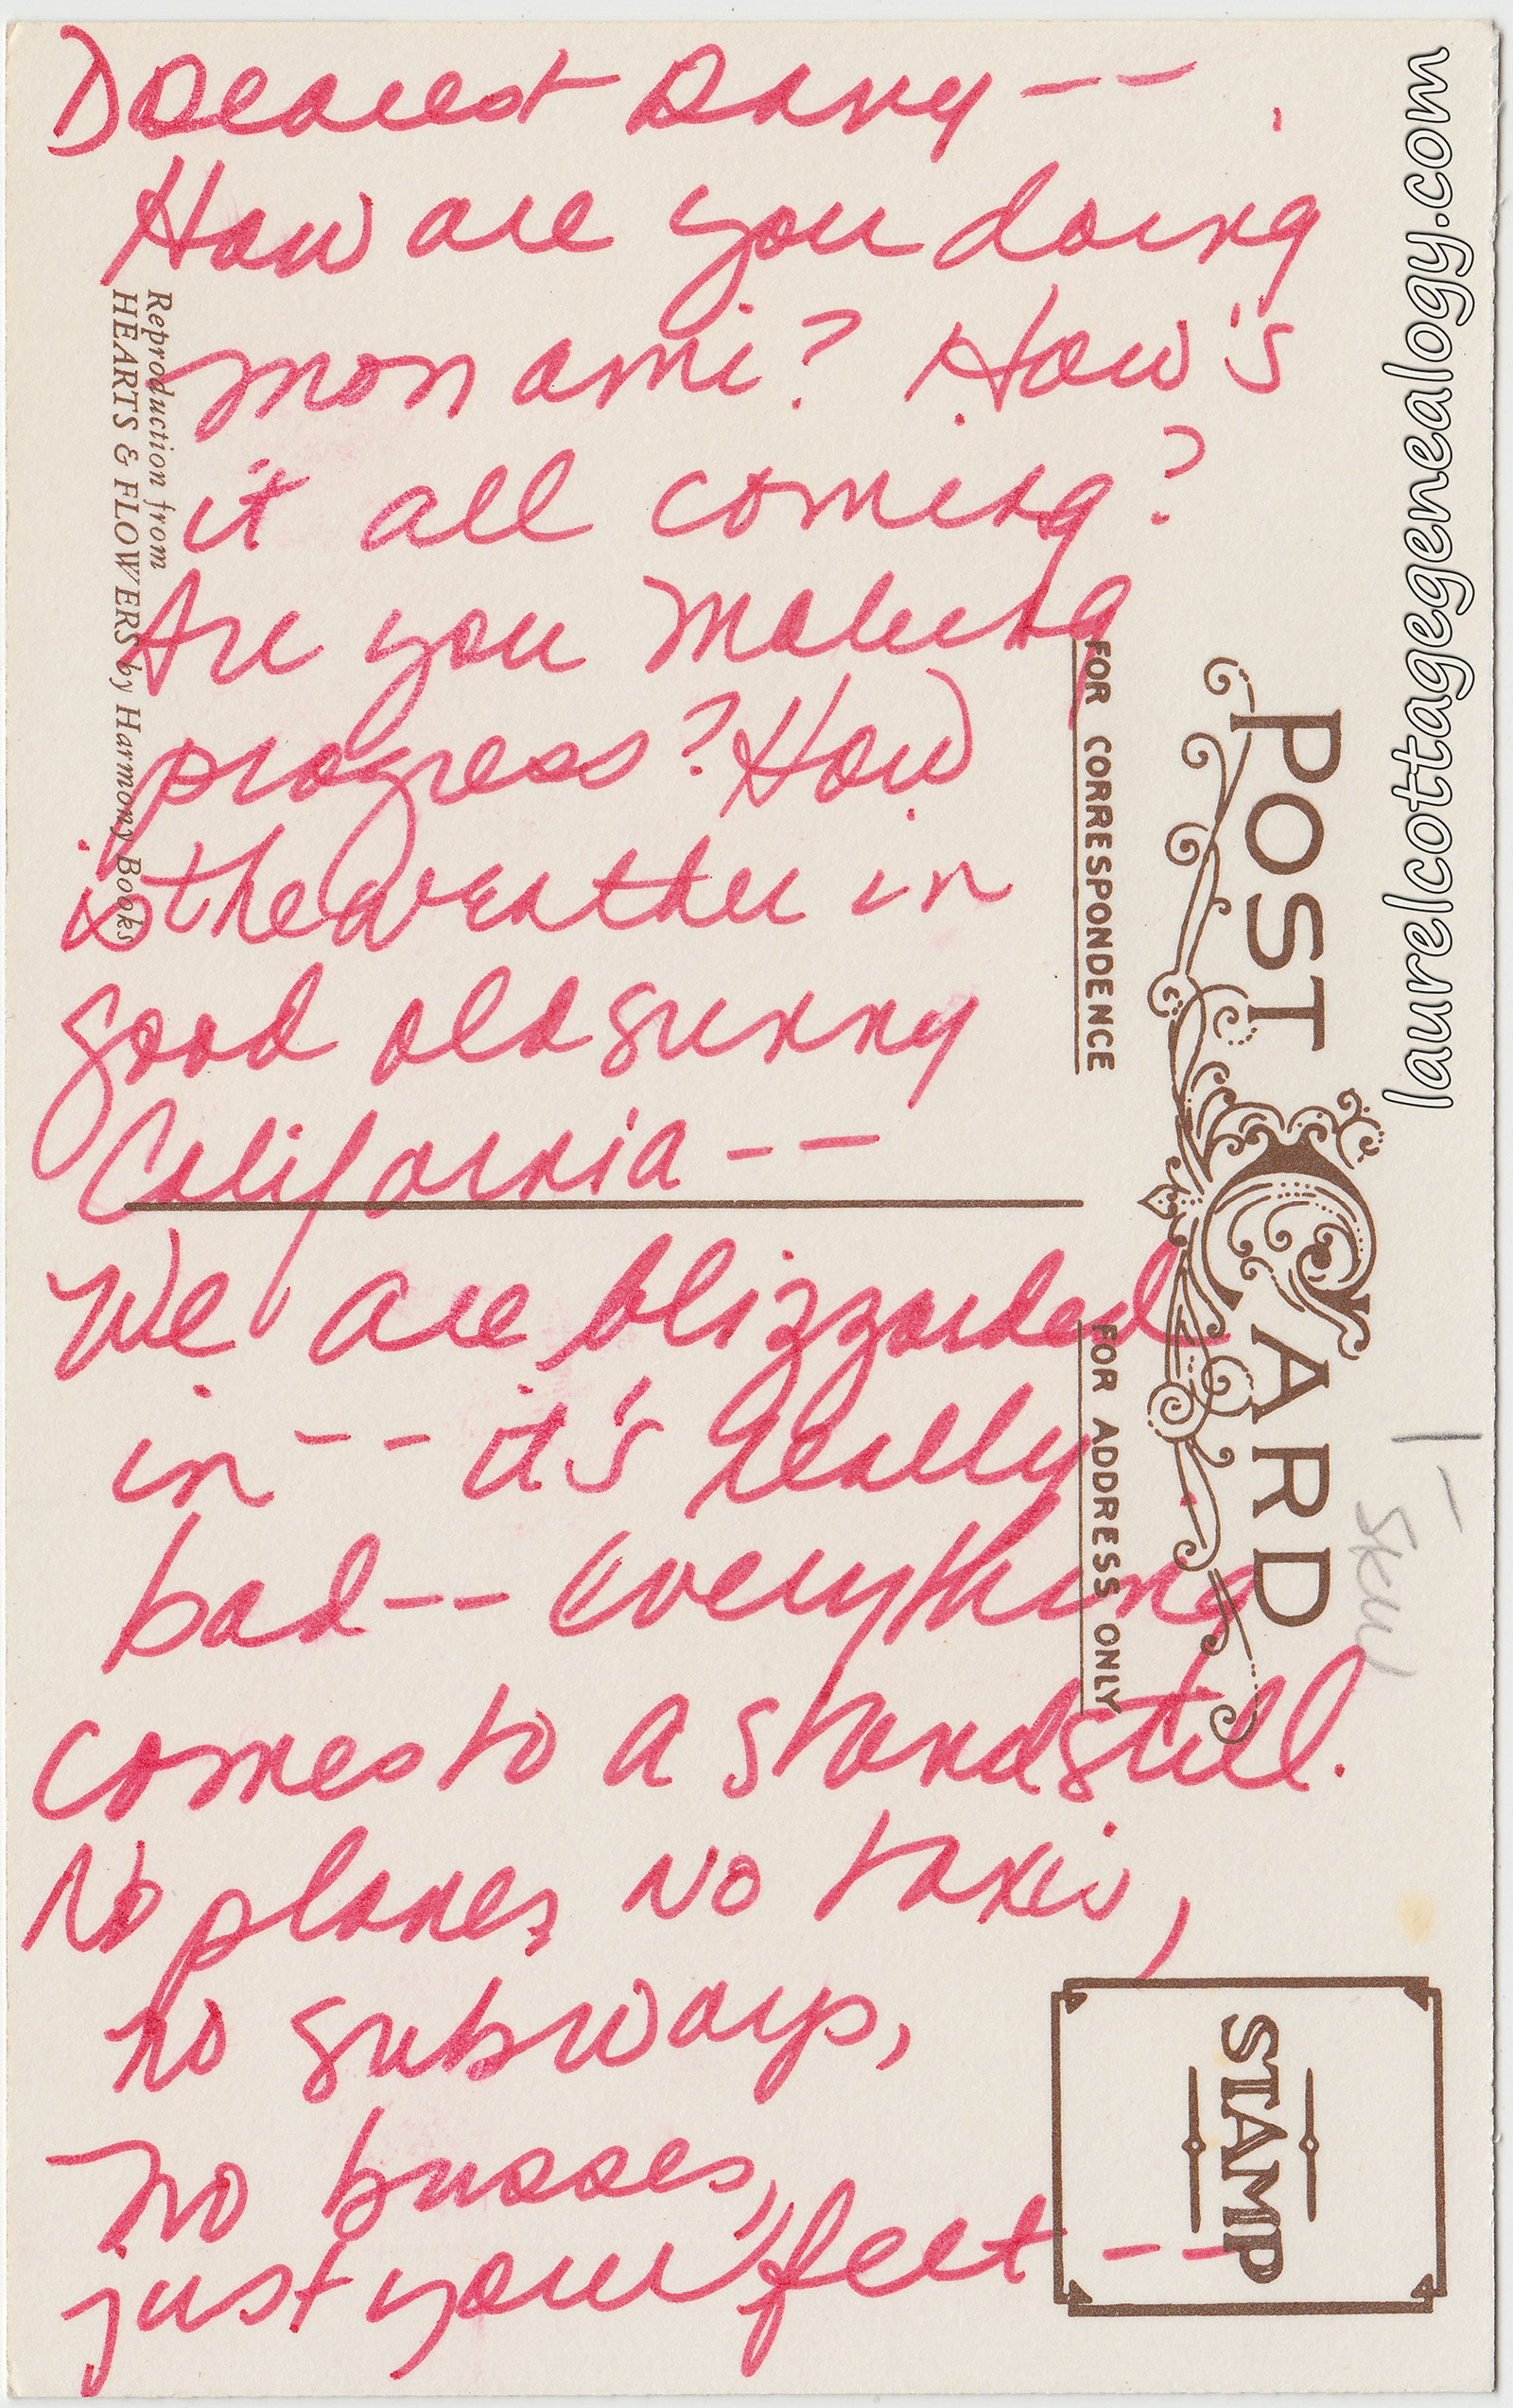 Dearest Davy --
How are you doing
mon ami? How's
it all coming?
Are you making
progress? How
is the weather in
good old sunny
California --
We are blizzarded
in -- it's really
bad -- everything
comes to a standstill.
No planes, no taxis,
no subways,
no busses,
just your feet --
Reproduction from
HEARTS & FLOWERS by Harmony Books
FOR CORRESPONDENCE
POST CARD
FOR ADDRESS ONLY
STAMP
laurelcottagegenealogy.com